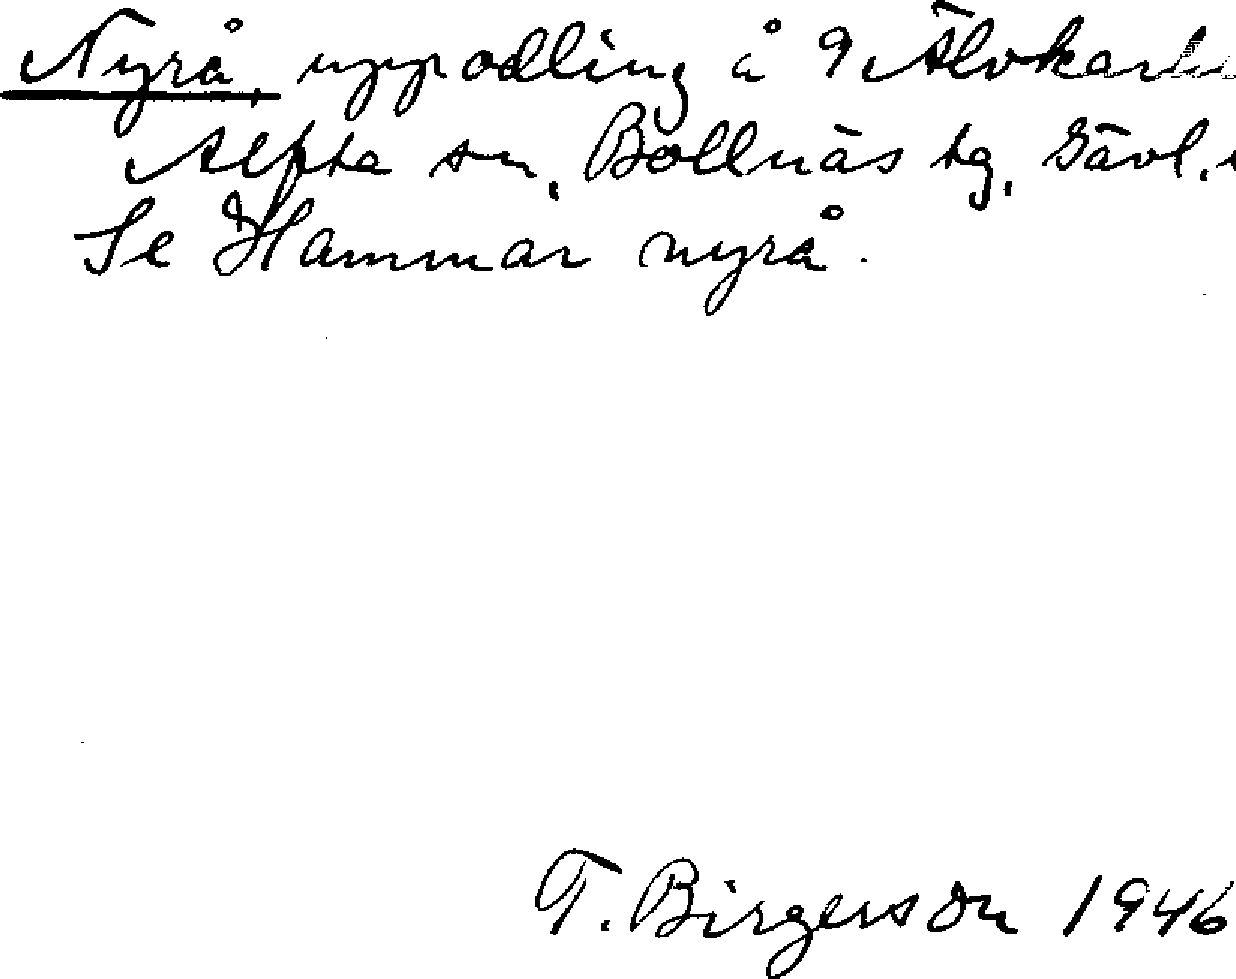 Nyrå, uppodling å 9 Älvkarh
Alfta sn, Bollnäs tg, Gävl.
Se Hammar nyrå.
T. Birgerson 1946